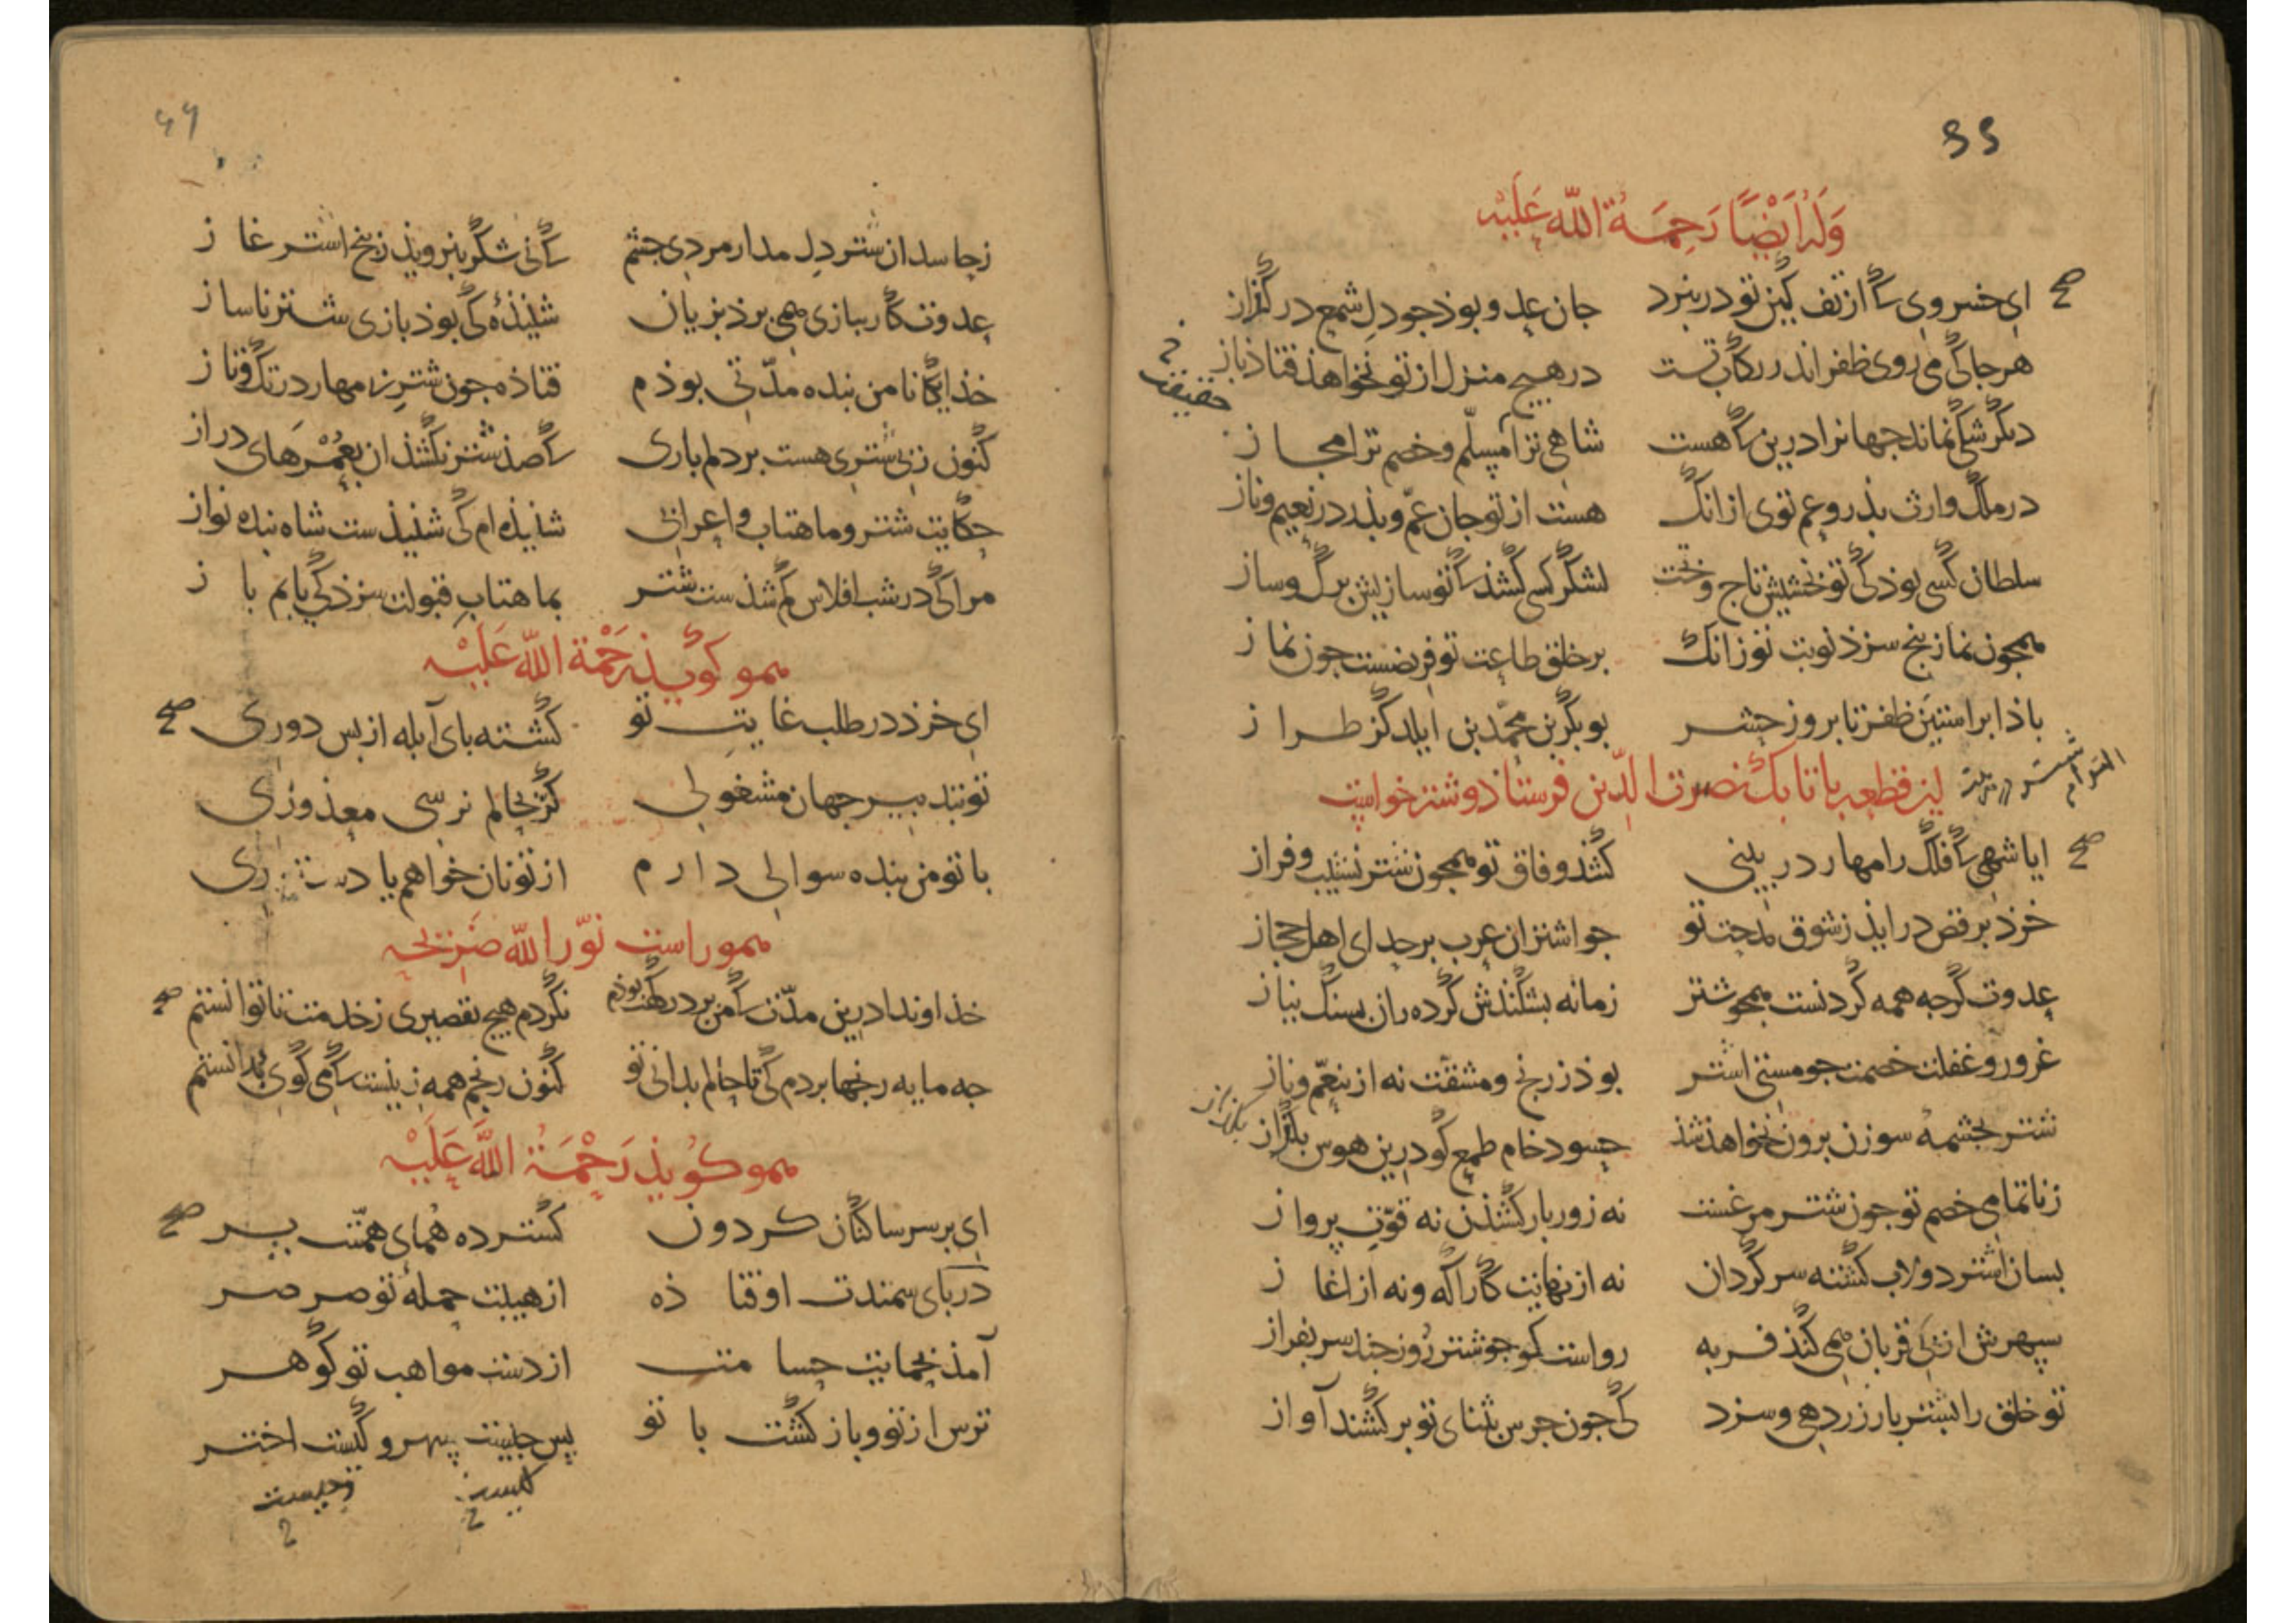 وَلَهُ اَیْضًا رَحِمَةُ اللّه عَلَیْه
ای خسروی کاز تف کین تو در نبرد جان عدو بوذ جو دل شمع در گداز
هر جا کی می روی ظفر اندر رکاب تست در هیچ منزل از تو نخواهذ فتاذ باز
دیگر شکی نماند جهانرا درین که هست شاهی ترا مسلّم و خصم ترا مجاز
حقیقت
در ملک وارث بذر و عم توی ازانک هست از تو جان عمّ و بذر در نعیم و ناز
سلطان کسی بوذ کی تو بخشیش تاج و تخت لشکر کسی کشذ که تو سازیش برگ و ساز
همجون نماز پنج سزذ نوبت تو زانک بر خلق طاعت تو فریضست جون نماز
باذا بر استین ظفر تا بروز حشر بوبکر بن محمّد بن ایلدگز طراز
این قطعه باتابک نصرت الدّین فرستاذ و شتر خواست
ایا شهی که فلک را مهار در بینی کشذ وفاق تو همجون شتر نشیب و فراز
خرذ برقص در ایذ ز شوق مدحت تو جو اشتران عرب بر حدای اهل حجاز
عدوت گرجه همه گردنست همجو شتر زمانه بشکندش گرده ران بسنگ نیاز
غرور و غفلت خصمت جو مستی اشتر بوذ ز رنج و مشقّت نه از تنعّم و ناز
شتر بجشمهٔ سوزن برون نخواهذ شذ حسود خام طمع گو درین هوس بگداز
زناتمامی خصم تو جون شتر مرغست نه زور بار کشذن نه قوّت پرواز
بسان اشتر دولاب کشته سر گردان نه از نهایت کار آگه و نه از اغاز
سپهرش از پی قربان همی کنذ فربه رواست کو جو شتر روز جند سر بفراز
تو خلق را بشتر بار زر دهی و سزد کی جون جرس بثنای تو بر کشند آواز
زحاسدان شتر دل مدار مردی جشم که نی شکر بنرویذ ز بیخ اشتر غاز
عدوت کار ببازی همی برذ بزیان شنیذهٔ کی بوذ بازی شتر ناساز
خذایگانا من بنده مدّتی بوذم فتاذه جون شتر بی مهار در تک و تاز
کنون ز بی شتری هست بر دلم باری که صذ شتر نکشذ ان بعُمْرهای دراز
حکایت شتر و ماهتاب و اعرابی شنیذه ام کی شنیذست شاه بنده نواز
مرا کی در شب افلاس گم شذست شتر بماهتاب قبولت سزذ کی یابم باز
همو کویذ رَحْمَة اللّه عَلَیْه
ای خرذ در طلب غایت تو کشته بای آبله از بس دوری
تو بتدبیر جهان مشغولی گر بحالم نرسی معذوری
با تو من بنده سوالی دارم از تو نان خواهم یا دستوری
همو راست نوّر اللّه ضریحه
خذاوندا درین مدّت که من بر درگهت بوذم نکردم هیچ تقصیری زخدمت تا توانستم
جه مایه رنجها بردم کی تا حالم بدانی تو کنون رنجم همه زینست که می گوی بدانستم
همو کویذ رَحْمَةُ اللَّه عَلَیْه
ای بر سر ساکنان کردون کسترده همای همّتت پر
در بای سمندت اوفتاذه از هیبت حملهٔ تو صرصر
آمذ بحمایت حسامت از دست مواهب تو گوهر
ترس از تو و باز کشت با تو پس جیست سپهر و کیست اختر
کیست
جیست